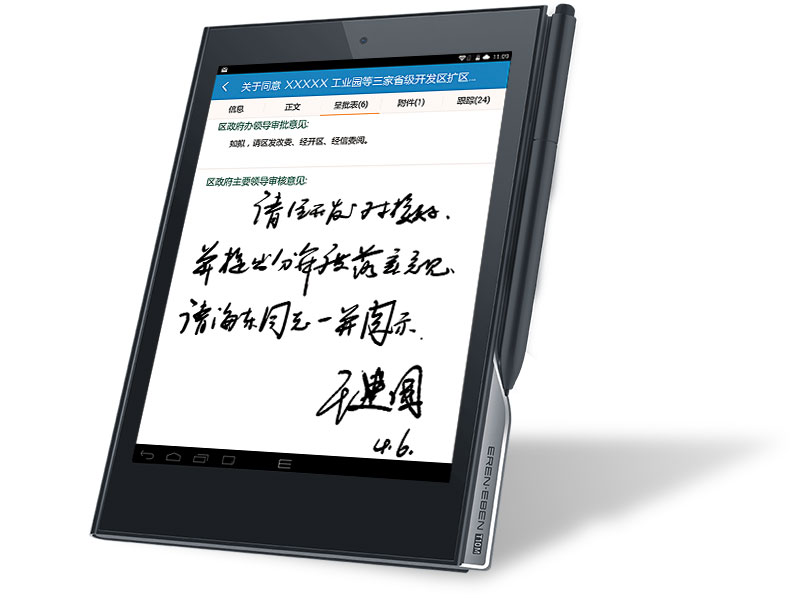 11:09
关于同意 XXXXX 工业园等三家省级开发区扩区...
信息 正文 呈批表(6) 附件(1) 跟踪(24)
区政府办领导审批意见:
如拟，请区发改委、经开区、经信委阅。
区政府主要领导审核意见:
请 对接好.
并提出分年度落实意见.
请海东同志一并阅示.
王建国
4.6.
EREN·EBEN T10M